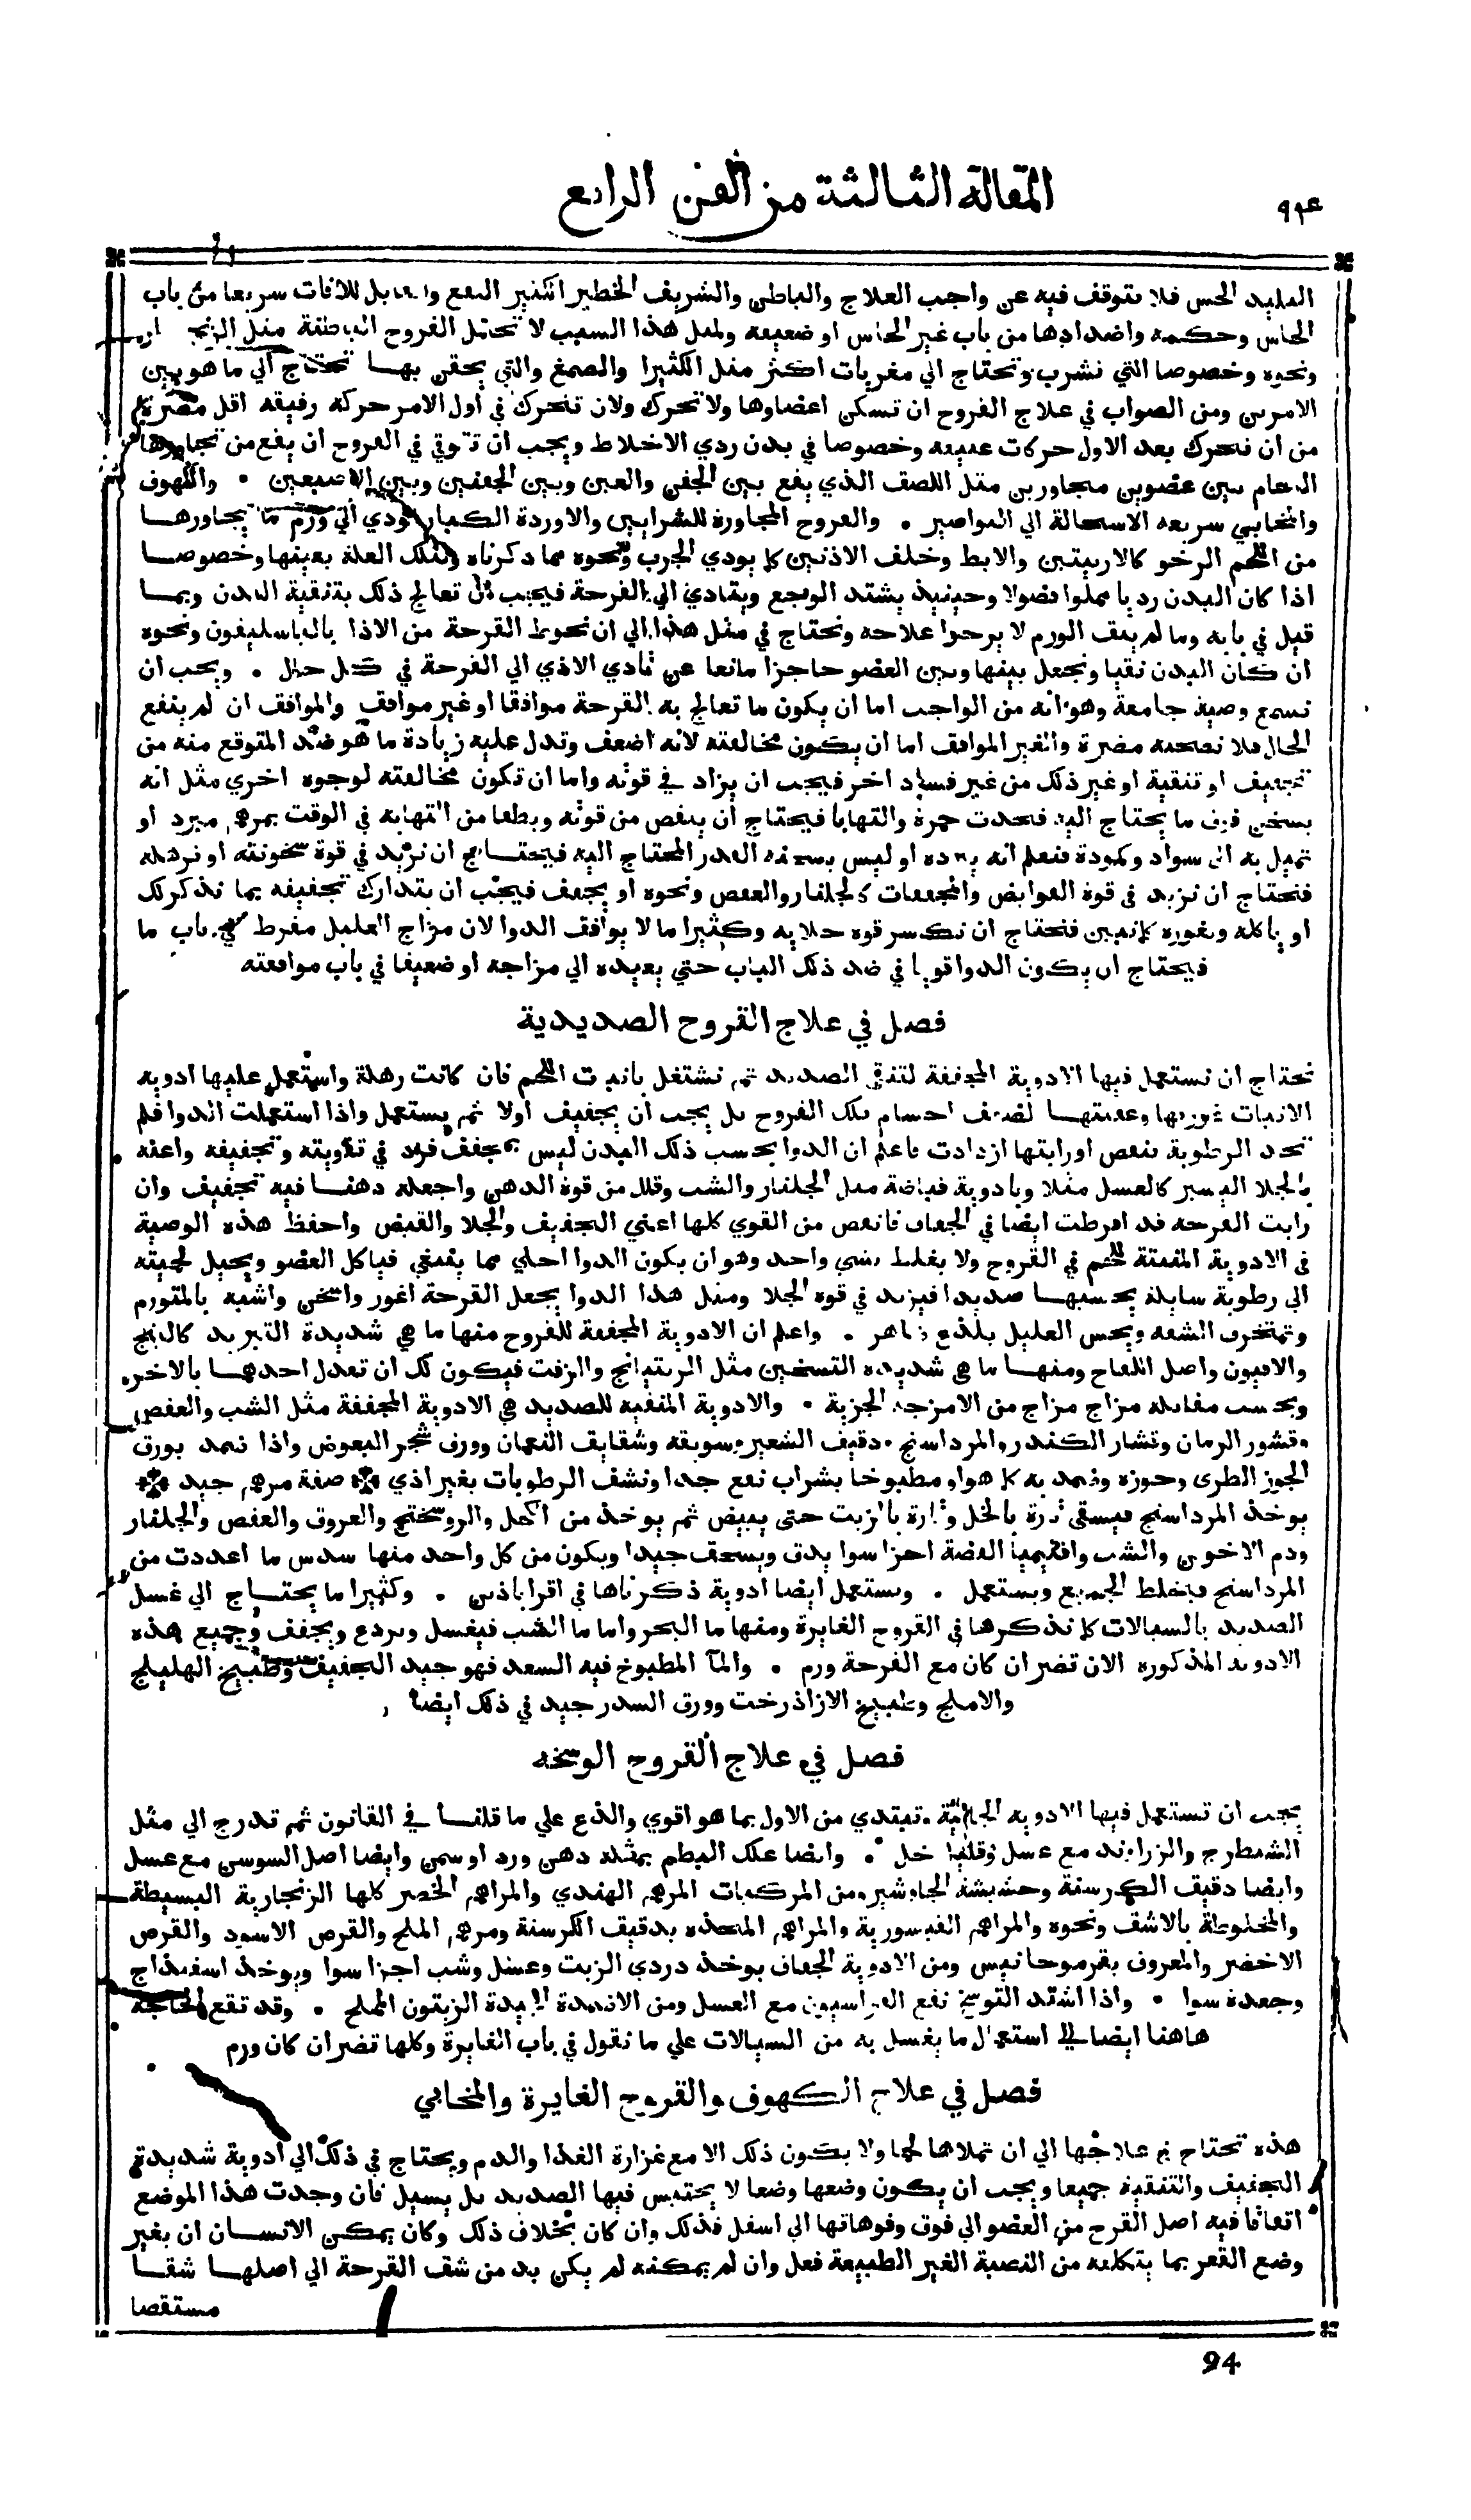 المقالة الثالثة من الفن الرابع
البليد الحس فلا يتوقف فيه عن واجب العلاج والباطن والشريف الخطير الكثير النفع والقابل للافات سريعا من باب
الحاس وحكمه واضدادها من باب غير الحاس او ضعيفه ولمثل هذا السبب لا تحتمل القروح الباطنة مثل الزنجار
ونحوه وخصوصا التي تشرب وتحتاج الي مغريات اكثر مثل الكثيرا والصمغ والتي يحقن بها تحتاج الي ما هو بين
الامرين ومن الصواب في علاج القروح ان تسكن اعضاوها ولا تحرك ولان تتحرك في اول الامر حركه رفيقه اقل مضرة
من ان تتحرك بعد الاول حركات عنيفه وخصوصا في بدن ردي الاخلاط ويجب ان توقي في القروح ان يقع من تجاورها
التحام بين عضوين متجاورين مثل اللصف الذي يقع بين الجفن والعين وبين الجفنين وبين الاصبعين • والكهوف
والمخابي سريعه الاستحالة الي النواصير • والقروح المجاورة للشرايين والاوردة الكبار تودي الي ورم ما يجاورها
من اللحم الرخو كالاربيتين والابط وخلف الاذنين كما يودي الجرب ونحوه مما ذكرناه ولتلك العلة بعينها وخصوصا
اذا كان البدن رديا مملوا فضولا وحينيذ يشتد الوجع ويتادي الي القرحة فيجب ان تعالج ذلك بتنقية البدن وبما
قيل في بابه وما لم يبق الورم لا يرجوا علاجه وتحتاج في مثل هذا الي ان تحوط القرحة من الاذا بالباسليقون ونحوه
ان كان البدن نقيا وتجعل بينها وبين العضو حاجزا مانعا عن تادي الاذي الي القرحة في كل حال • ويجب ان
تسمع وصية جامعة وهو انه من الواجب اما ان يكون ما تعالج به القرحة موافقا او غير موافق والموافق ان لم ينفع
الحال فلا تصحبه مضرة والغير الموافق اما ان يكون مخالفته لانه اضعف وتدل عليه زيادة ما هو ضد المتوقع منه من
تجفيف او تنقية او غير ذلك من غير فساد اخر فيجب ان يزاد في قوته واما ان تكون مخالفته لوجوه اخري مثل انه
يسخن فوق ما يحتاج اليه فتحدث حمرة والتهابا فيحتاج ان ينقص من قوته ويطفا من التهابه في الوقت بمرهم مبرد او
تميل به الي سواد وكمودة فتعلم انه يبرده او ليس يسخنه القدر المحتاج اليه فيحتاج ان نزيد في قوة سخونته او نرهله
فتحتاج ان تزيد في قوة القوابض والمجففات كالجلنار والعفص ونحوه او يجفف فيجب ان يتدارك تجفيفه بما نذكر لك
او ياكله ويغوره كما نبين فتحتاج ان تكسر قوه جلايه وكثيرا ما لا يوافق الدوا لان مزاج العليل مفرط في باب ما
فيحتاج ان يكون الدوا قويا في ضد ذلك الباب حتي يعيده الي مزاجه او ضعيفا في باب موافقته
فصل في علاج القروح الصديدية
تحتاج ان تستعمل فيها الادوية المجففة لتنقي الصديد ثم نشتغل بانبات اللحم فان كانت رهلة واستعمل عليها ادويه
الانبات غورتها وعفنتها لضعف اجسام تلك القروح بل يجب ان يجفيف اولا ثم يستعمل واذا استعملت الدوا فلم
تجد الرطوبة تنقص او رايتها ازدادت فاعلم ان الدوا بحسب ذلك البدن ليس بمجفف فزد في تقويته وتجفيفه واعنه
بالجلا اليسير كالعسل مثلا وبادوية قباضة مثل الجلنار والشب وقلل من قوة الدهن واجعله دهنا فيه تجفيف وان
رايت القرحه قد افرطت ايضا في الجفاف فانقص من القوي كلها اعني التجفيف والجلا والقبض واحفظ هذه الوصية
في الادوية المنبتة للحم في القروح ولا يغلط بشي واحد وهو ان يكون الدوا اجلي مما ينبغي فياكل العضو ويحيل لحميته
الي رطوبة سايلة يحسبها صديدا فيزيد في قوه الجلا ومثل هذا الدوا يجعل القرحة اغور واسخن واشبه بالمتورم
وتمتخرف الشفه ويحس العليل بلذع ظاهر • واعلم ان الادوية المجففة للقروح منها ما هي شديدة التبريد كالبنج
والافيون واصل اللفاح ومنها ما هي شديده التسخين مثل الريتيانج والزفت فيكون لك ان تعدل احدها بالاخر
وبحسب مقابله مزاج مزاج من الامزجه الجزية • والادوية المنقيه للصديد هي الادوية المجففة مثل الشب والعفص
وقشور الرمان وقشار الكندر والمرداسنج ودقيق الشعير وسويقه وشقايق النعمان وورق شجر البعوض واذا ضمد بورق
الجوز الطري وجوزه وضمد به كما هو او مطبوخا بشراب نفع جدا ونشف الرطوبات بغير اذي ✽ صفة مرهم جيد ✽
يوخذ المرداسنج فيسقى تارة بالخل وتارة بالزيت حتى يبيض ثم يوخذ من الكحل والروسختج والعروق والعفص والجلنار
ودم الاخوين والشب واقليميا الفضة اجزا سوا يدق ويسحق جيدا ويكون من كل واحد منها سدس ما اعددت من
المرداسنج فتخلط الجميع ويستعمل • ويستعمل ايضا ادوية ذكرناها في اقراباذين • وكثيرا ما يحتاج الي غسل
الصديد بالسيالات كما نذكرها في القروح الغايرة ومنها ما البحر واما ما الشب فيغسل ويردع ويجفف وجميع هذه
الادويه المذكوره الان تضر ان كان مع القرحة ورم • والمآ المطبوخ فيه السعد فهو جيد التجفيف وطبيخ الهليلج
والاملج وطبيخ الازاذرخت وورق السدر جيد في ذلك ايضا
فصل في علاج القروح الوسخه
يجب ان تستعمل فيها الادويه الجالية وتبتدي من الاول بما هو اقوي والذع علي ما قلنا في القانون ثم تدرج الي مثل
الشيطرج والزراوند مع عسل وقليل خل • وايضا علك البطم بمثله دهن ورد او سمن وايضا اصل السوسن مع عسل
وايضا دقيق الكرسنة وحشيشة الجاوشير ومن المركبات المرهم الهندي والمراهم الخضر كلها الزنجارية البسيطة
والمخلوطة بالاشق ونحوه والمراهم القيسورية والمراهم المتخذه بدقيق الكرسنة ومرهم الملح والقرص الاسود والقرص
الاخضر والمعروف بقرموحانيس ومن الادوية الجفاف يوخذ دردي الزيت وعسل وشب اجزا سوا ويوخذ اسفيذاج
وجعدة سوا • واذا اشتد التوسخ نفع الفراسيون مع العسل ومن الاضمدة الجيدة الزيتون المملح • وقد تقع الحاجة
هاهنا ايضا الي استعمال ما يغسل به من السيالات علي ما نقول في باب الغايرة وكلها تضر ان كان ورم
فصل في علاج الكهوف والقروح الغايرة والمخابي
هذه تحتاج في علاجها الي ان تملاها لحما ولا يكون ذلك الا مع غزارة الغذا والدم ويحتاج في ذلك الي ادوية شديدة
التجفيف والتنقية جميعا ويجب ان يكون وضعها وضعا لا يحتبس فيها الصديد بل يسيل فان وجدت هذا الموضع
اتفاقا فيه اصل القرح من العضو الي فوق وفوهاتها الي اسفل فذلك وان كان بخلاف ذلك وكان يمكن الانسان ان يغير
وضع القعر بما يتكلفه من النصبة الغير الطبيعة فعل وان لم يمكنه لم يكن بد من شق القرحة الي اصلها شقا
مستقصا
94